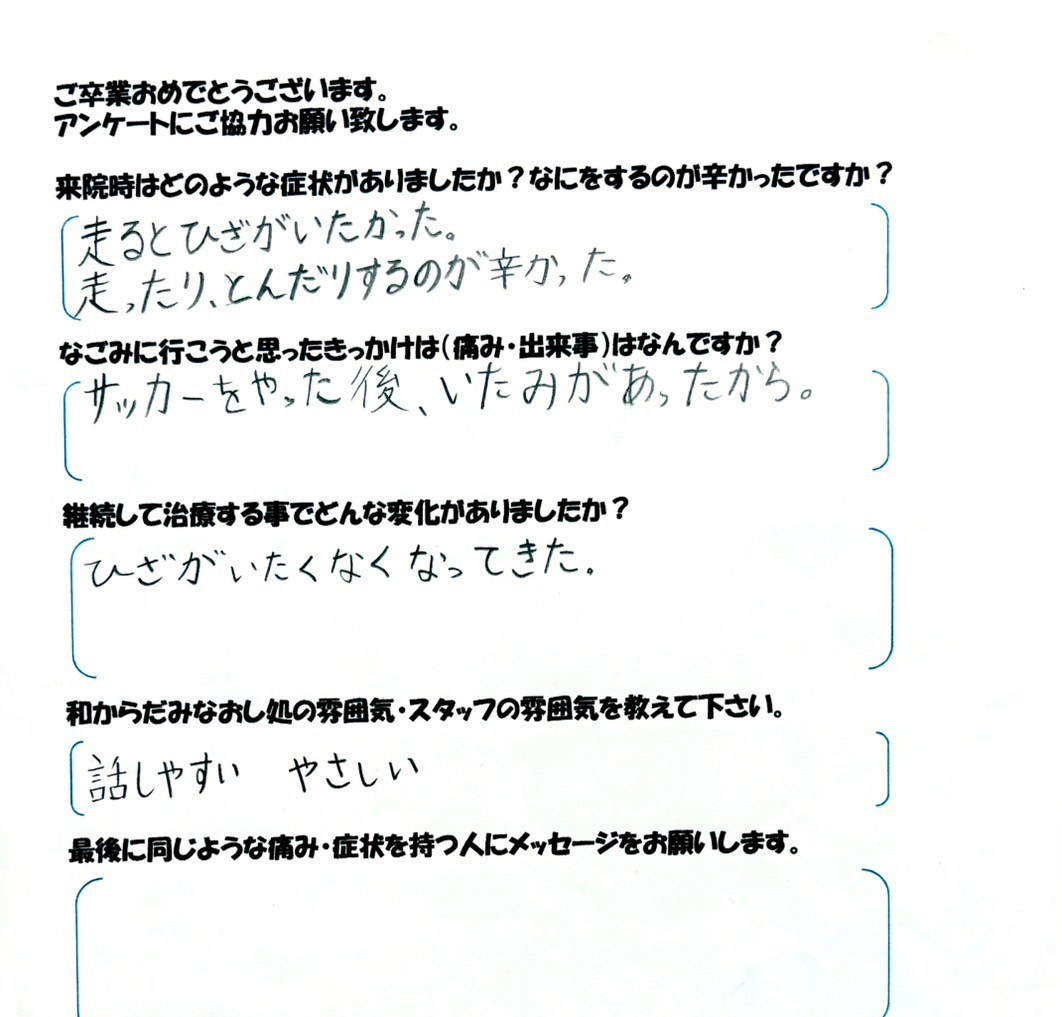 ご卒業おめでとうございます。
アンケートにご協力お願い致します。
来院時はどのような症状がありましたか？なにをするのが辛かったですか？
走るとひざがいたかった。
走ったり、とんだりするのが辛かった。
なごみに行こうと思ったきっかけは(痛み・出来事)はなんですか？
サッカーをやった後、いたみがあったから。
継続して治療する事でどんな変化がありましたか？
ひざがいたくなくなってきた.
和からだみなおし処の雰囲気・スタッフの雰囲気を教えて下さい。
話しやすい　やさしい
最後に同じような痛み・症状を持つ人にメッセージをお願いします。